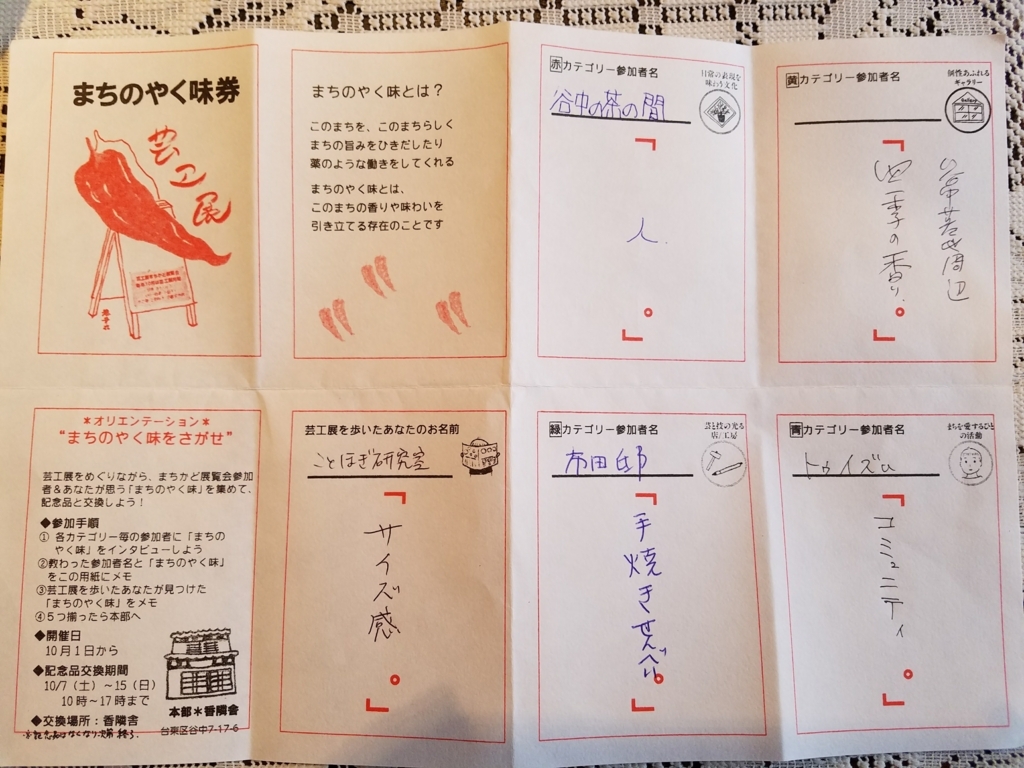 まちのやく味券
芸工展
まちのやく味とは？
このまちを、このまちらしく
まちの旨みをひきだしたり
薬のような働きをしてくれる
まちのやく味とは、
このまちの香りや味わいを
引き立てる存在のことです
赤カテゴリー参加者名
日常の表現を
味わう文化
谷中の茶の間
「
人
。」
黄カテゴリー参加者名
個性あふれる
ギャラリー
「
四季の香り
。」
＊オリエンテーション＊
“まちのやく味をさがせ”
芸工展をめぐりながら、まちかど展覧会参加
者＆あなたが思う「まちのやく味」を集めて、
記念品と交換しよう！
◆参加手順
① 各カテゴリー毎の参加者に「まちの
やく味」をインタビューしよう
②教わった参加者名と「まちのやく味」
をこの用紙にメモ
③芸工展を歩いたあなたが見つけた
「まちのやく味」をメモ
④５つ揃ったら本部へ
◆開催日
10月１日から
◆記念品交換期間
10/7（土）～15（日）
10時～17時まで
◆交換場所：香隣舎
※記念品はなくなり次第終了
本部＊香隣舎
台東区谷中7-17-6
芸工展を歩いたあなたのお名前
ことほぎ研究室
「
サイズ感
。」
緑カテゴリー参加者名
芸と技の光る
店/工房
市田邸
「
手焼きせんべい
。」
青カテゴリー参加者名
まちを愛するひと
の活動
トゥイズu
「
コミュニティ
。」